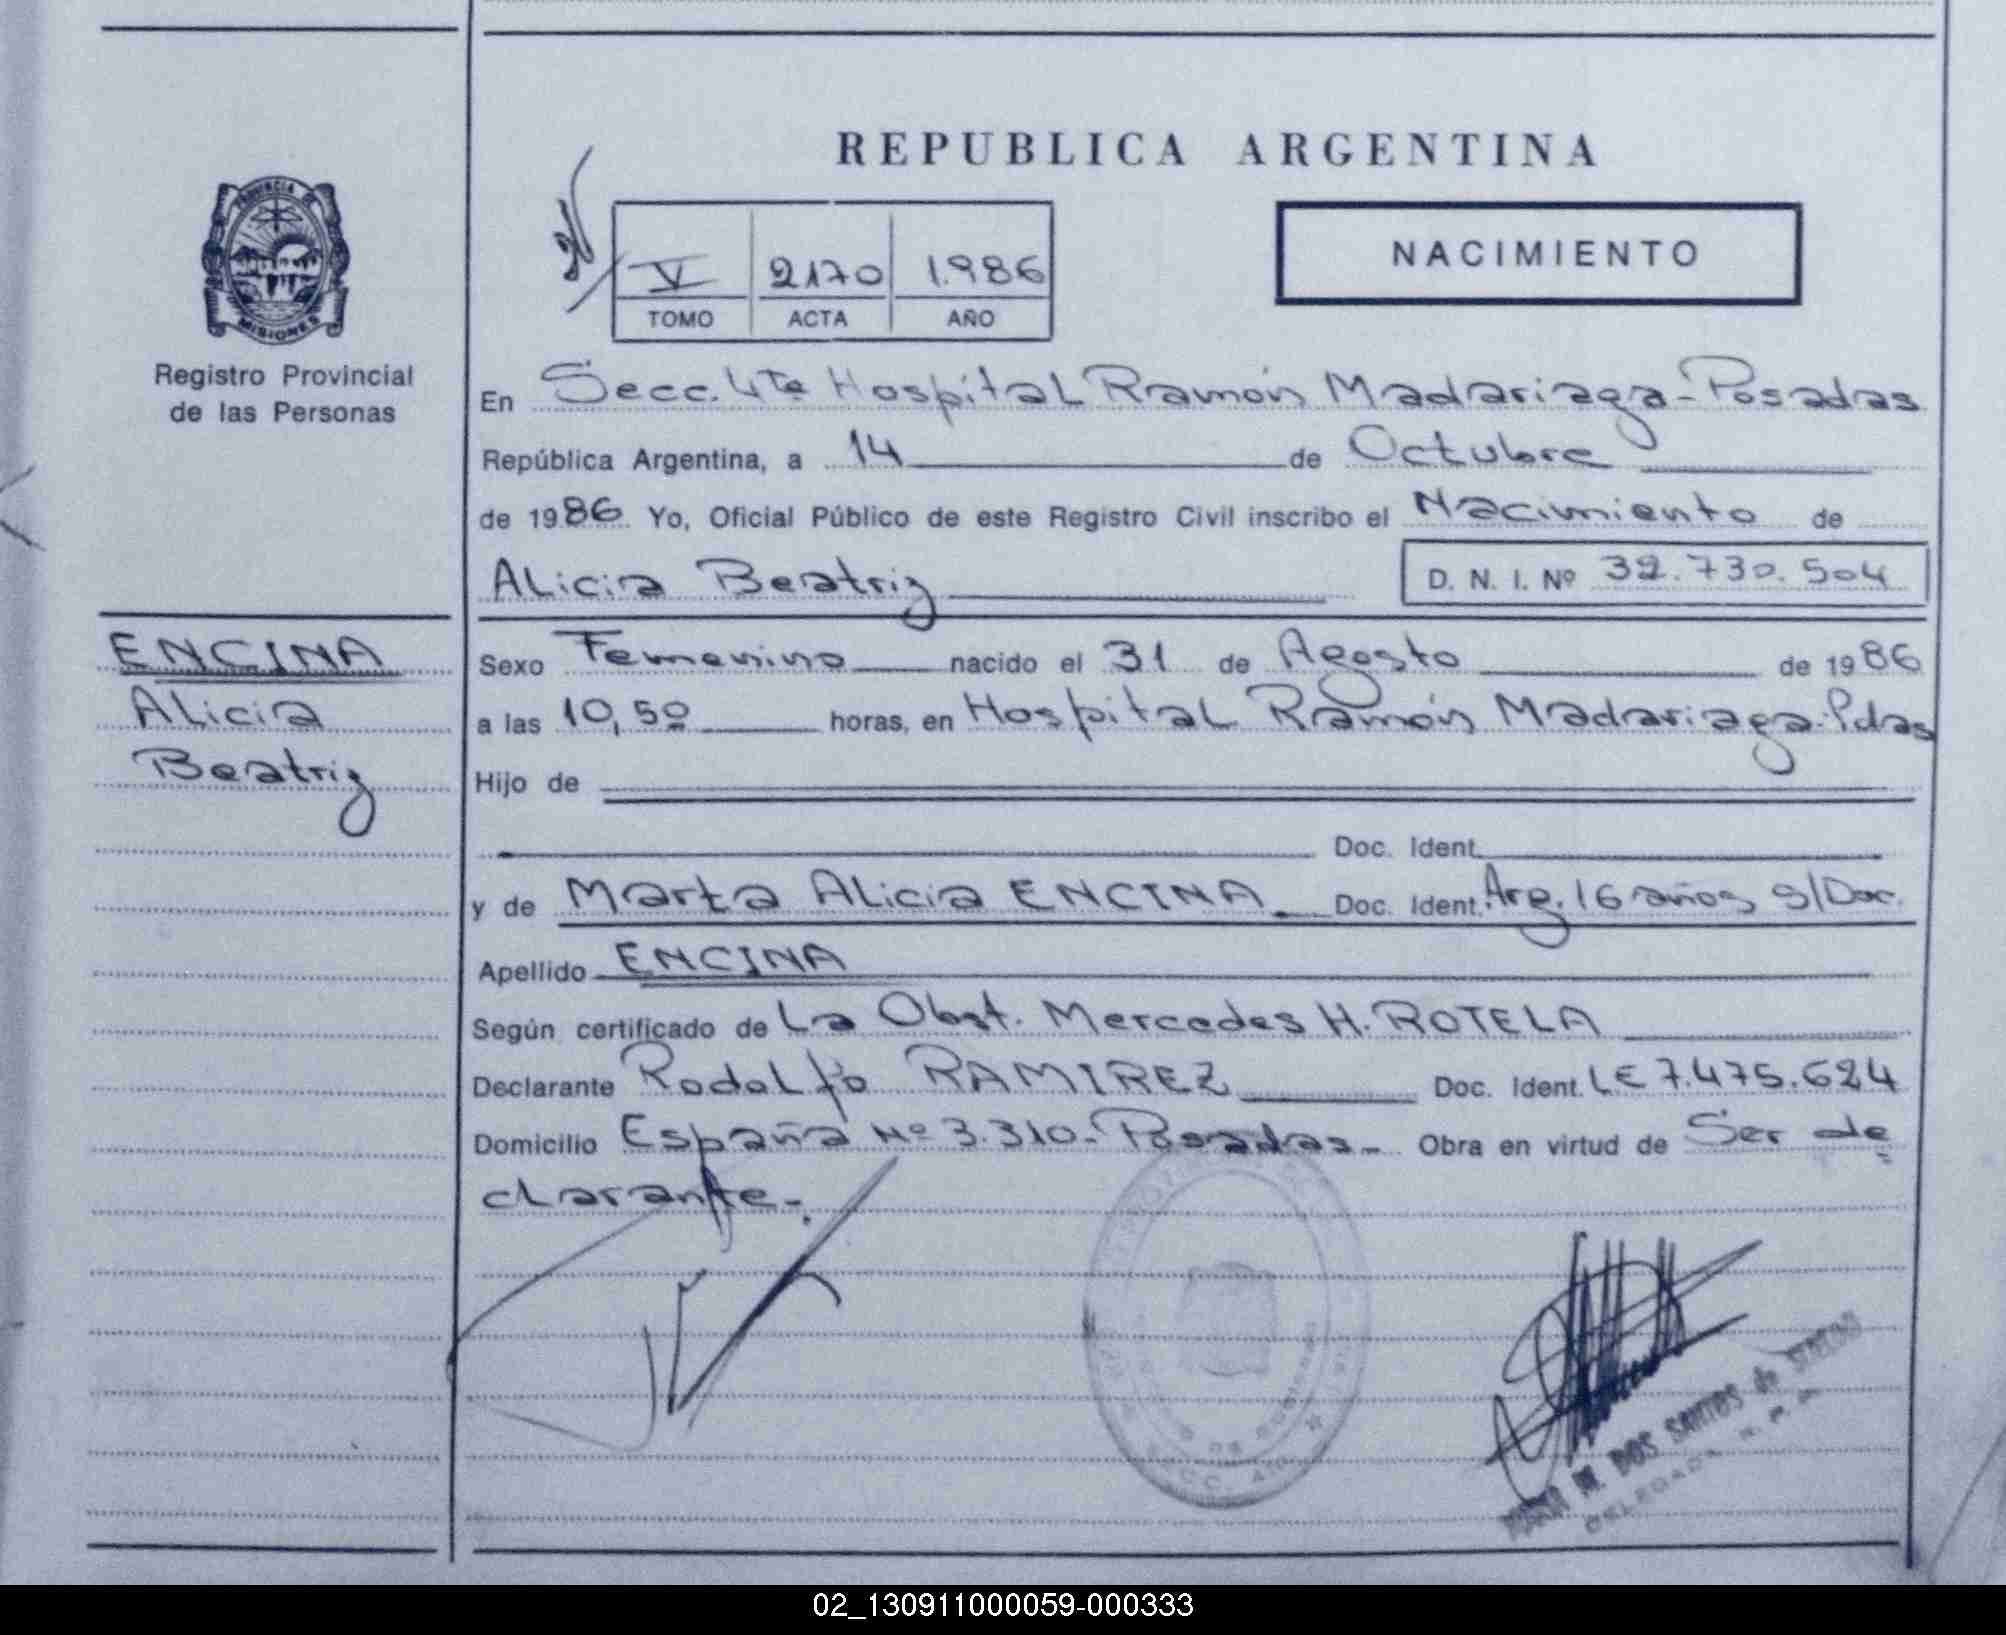 REPUBLICA ARGENTINA
PROVINCIA DE
MISIONES
Registro Provincial
de las Personas
V 2170 1.986
TOMO ACTA AÑO
NACIMIENTO
En Secc. 4ta Hospital Ramón Madariaga - Posadas
República Argentina, a 14 de Octubre
de 1986 Yo, Oficial Público de este Registro Civil inscribo el Nacimiento de
Alicia Beatriz D. N. I. Nº 32.730.504
ENCINA
Alicia
Beatriz
Sexo Femenino nacido el 31 de Agosto de 1986
a las 10,50 horas, en Hospital Ramón Madariaga - Pdas
Hijo de
Doc. Ident.
y de Marta Alicia ENCINA Doc. Ident. Arg. 16 años s/Doc.
Apellido ENCINA
Según certificado de La Obst. Mercedes H. ROTELA
Declarante Rodolfo RAMIREZ Doc. Ident. LE 7.475.624
Domicilio España Nº 3.310 - Posadas - Obra en virtud de Ser de
clarante -.
SECC. 4ta
M. DOS SANTOS de
DELEGADA R. P. P.
02_130911000059-000333